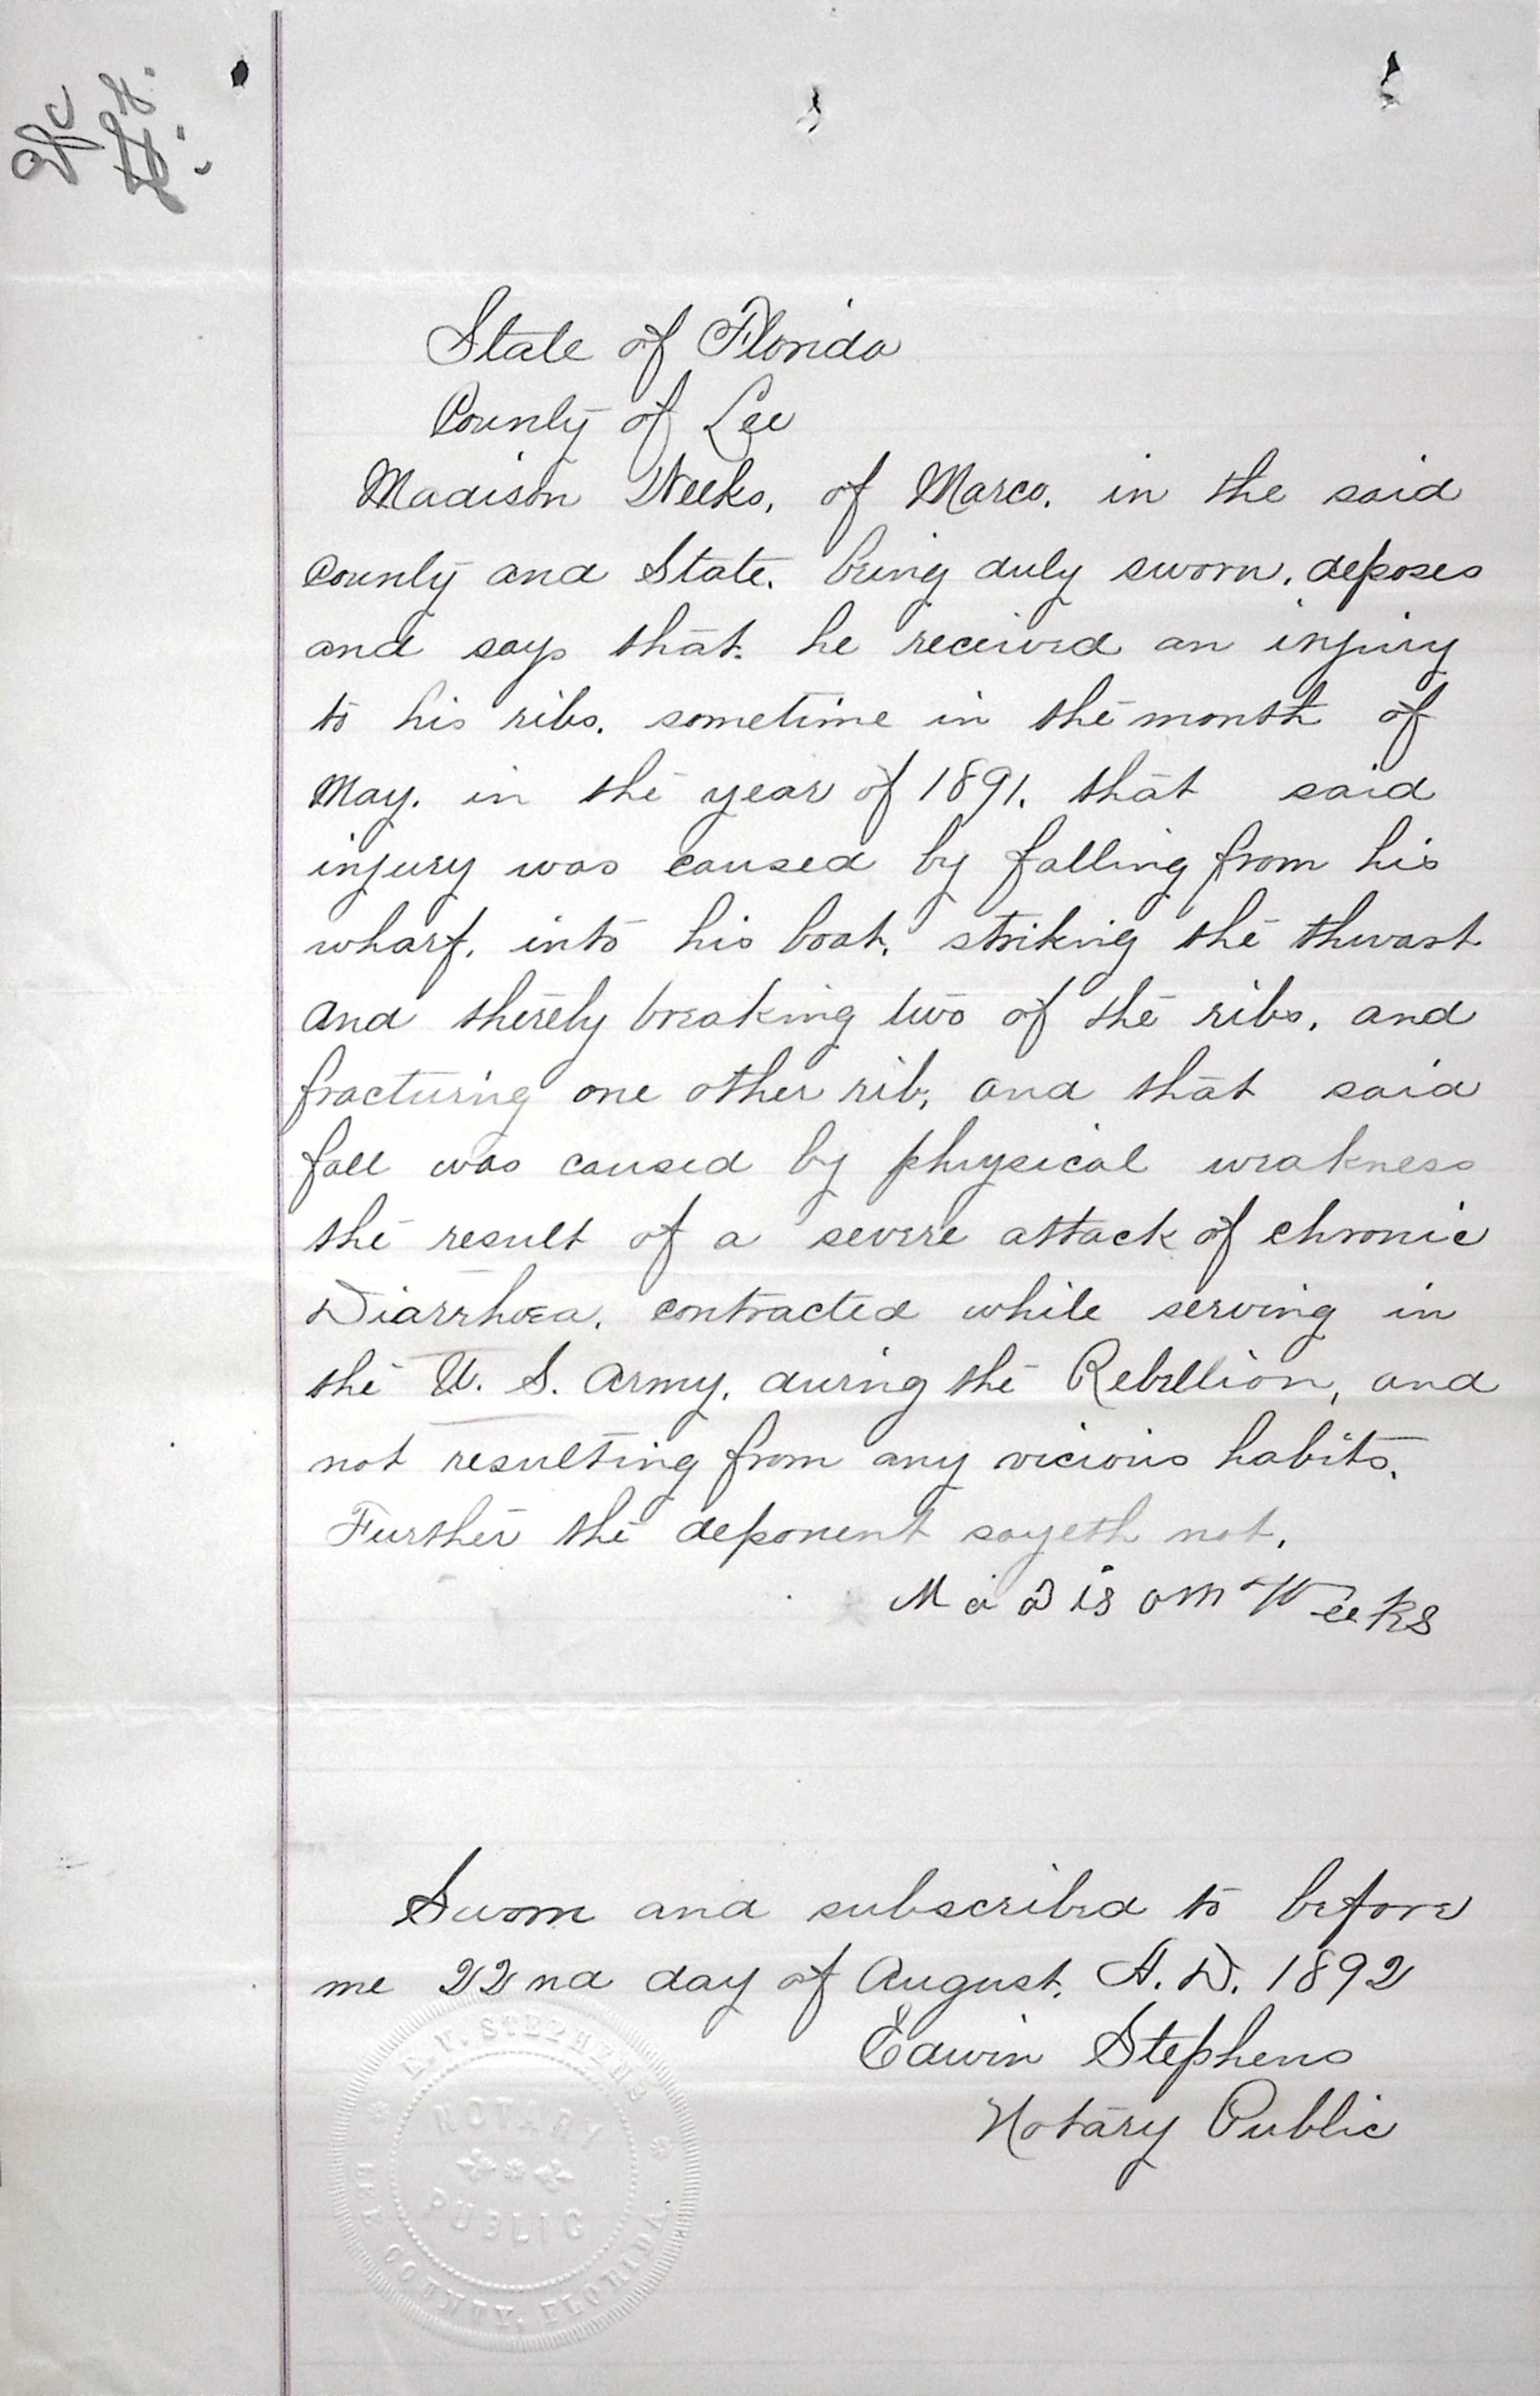 State of Florida
County of Lee
Madison Weeks, of Marco. in the said
County and State. being duly sworn. deposes
and says that. he received an injury
to his ribs. sometime in the month of
May. in the year of 1891. that said
injury was caused by falling from his
wharf. into his boat. striking the thwart
and thereby breaking two of the ribs. and
fracturing one other rib, and that said
fall was caused by physical weakness
the result of a severe attack of chronic
Diarrhoea. contracted while serving in
the U. S. Army. during the Rebellion, and
not resulting from any vicious habits.
Further the deponent sayeth not.
Madison Weeks
Sworn and subscribed to before
me 22nd day of August. A. D. 1892
Edwin Stephens
Notary Public
STEPHENS
NOTARY
PUBLIC
LEE COUNTY, FLORIDA.